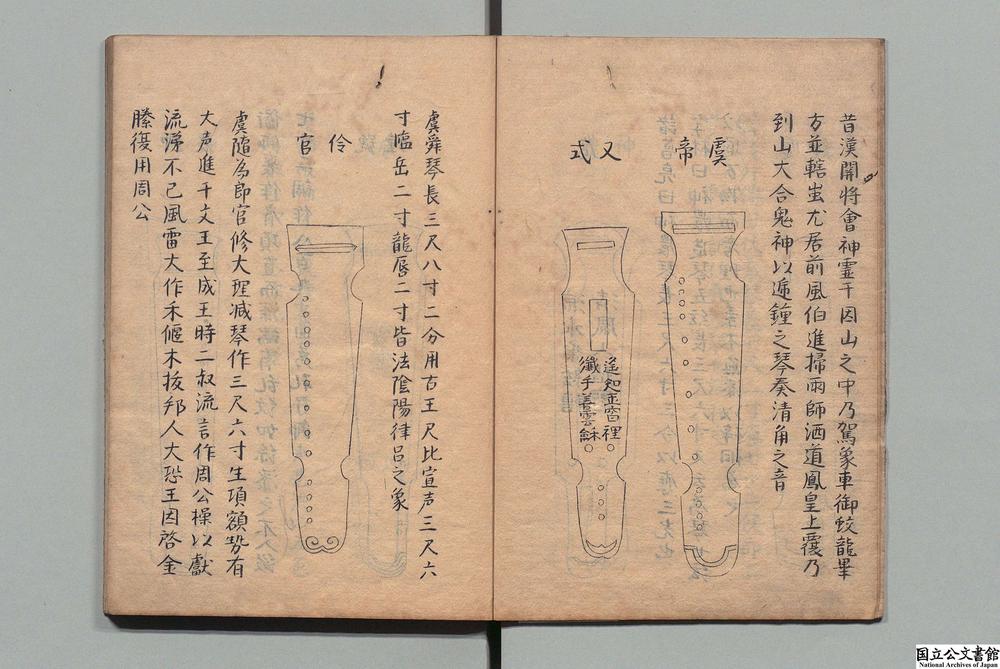 昔漢開將會神霊于因山之中乃駕象車御蛟龍畢
方並轄蚩尤居前風伯進掃雨師洒道鳳皇上覆乃
到山大合鬼神以遞鐘之琴奏清角之音
虞帝
又式
遥知並窗裡
纖手美雲龢
虞舜琴長三尺八寸二分用古玉尺比宣声三尺六
寸临岳二寸龍唇二寸皆法陰陽律吕之象
伶官
虞隨為郎官修大理减琴作三尺六寸生項額勢有
大声進于文王至成王時二叔流言作周公操以獻
流涕不已風雷大作禾偃木拔邦人大恐王因啓金
縢復用周公
国立公文書館
National Archives of Japan